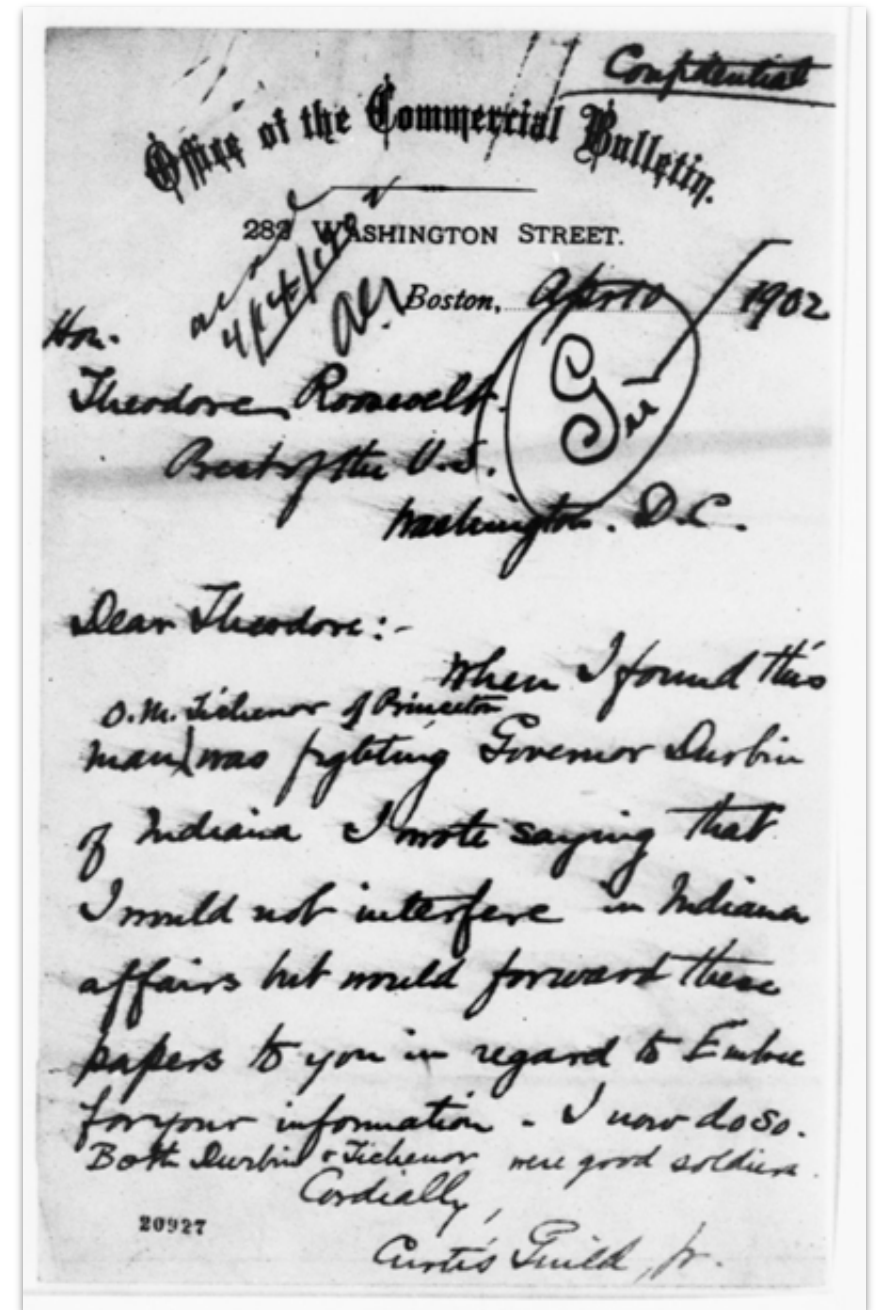 Confidential
Office of the Commercial Bulletin.
282 WASHINGTON STREET.
Boston, Apr 10 1902
Hon.
Theodore Roosevelt.
Prest of the U.S.
Washington. D.C.
Dear Theodore:-
When I found this
O.M. Tichenor of Princeton
man was fighting Governor Durbin
of Indiana I wrote saying that
I would not interfere in Indiana
affairs but would forward these
papers to you in regard to Embree
for your information - I now do so.
Both Durbin & Tichenor were good soldiers.
Cordially,
Curtis Guild, Jr.
20927